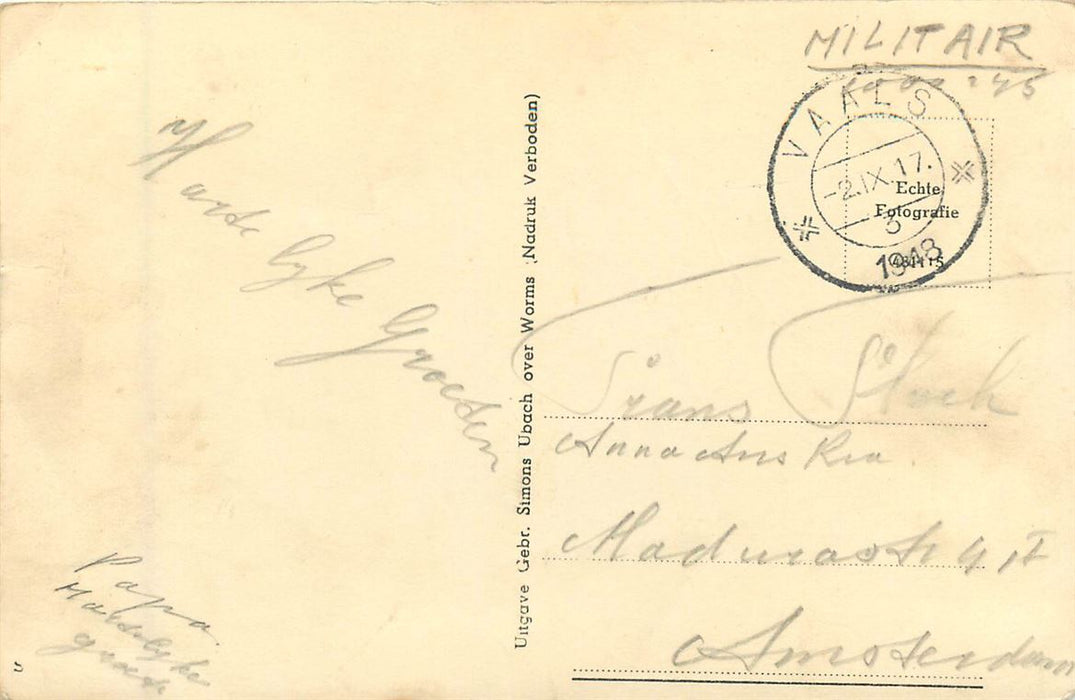 MILITAIR
VAALS
-2.IX.17.
3
1948
Echte
Fotografie
Hartelyke Groeten
Uitgave Gebr. Simons Ubach over Worms (Nadruk Verboden)
Frans
Anna Ans Ria
Madurastr
Amsterdam
Papa
Hartelyke
groet